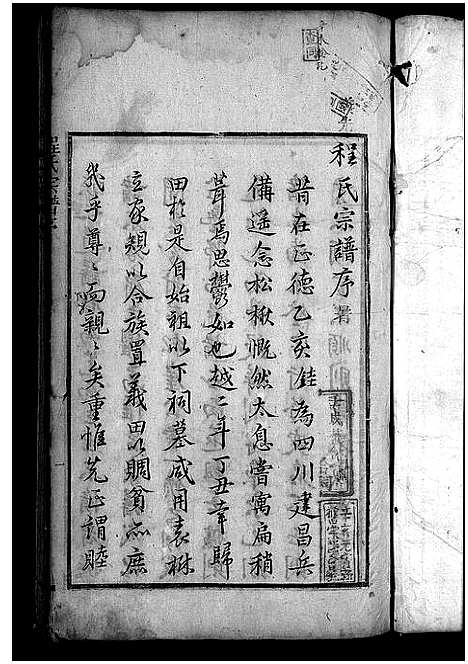 程氏宗譜序
昔在正德乙亥銈為四川建昌兵
備遥念松楸慨然太息嘗寓扁稍
葺焉思鬱如也越二年丁丑幸歸
田於是自始祖以下祠墓咸用表樹
立家規以合族置義田以賙貧亦庶
幾乎尊〻而親〻矣重惟先正謂睦